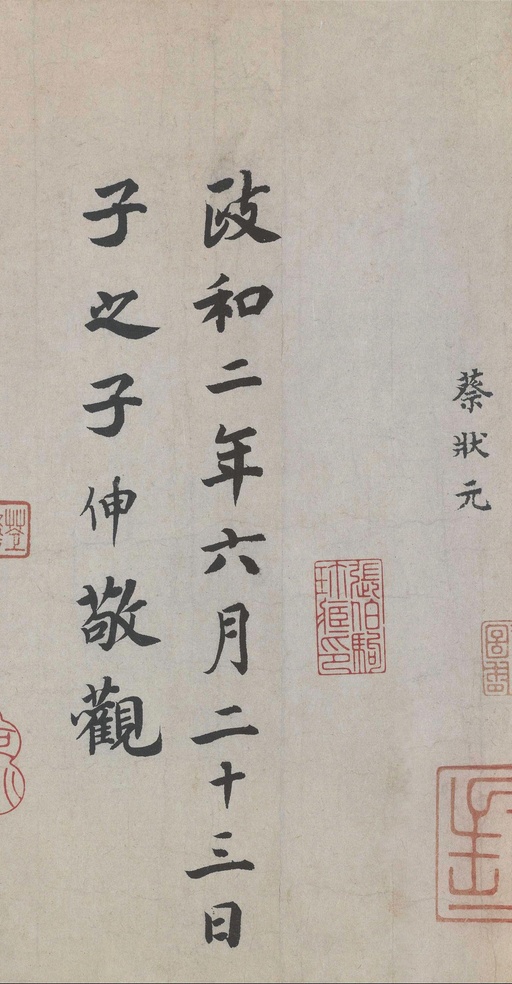 蔡狀元
政和二年六月二十三日
子之子伸敬觀
張伯駒
珎藏印